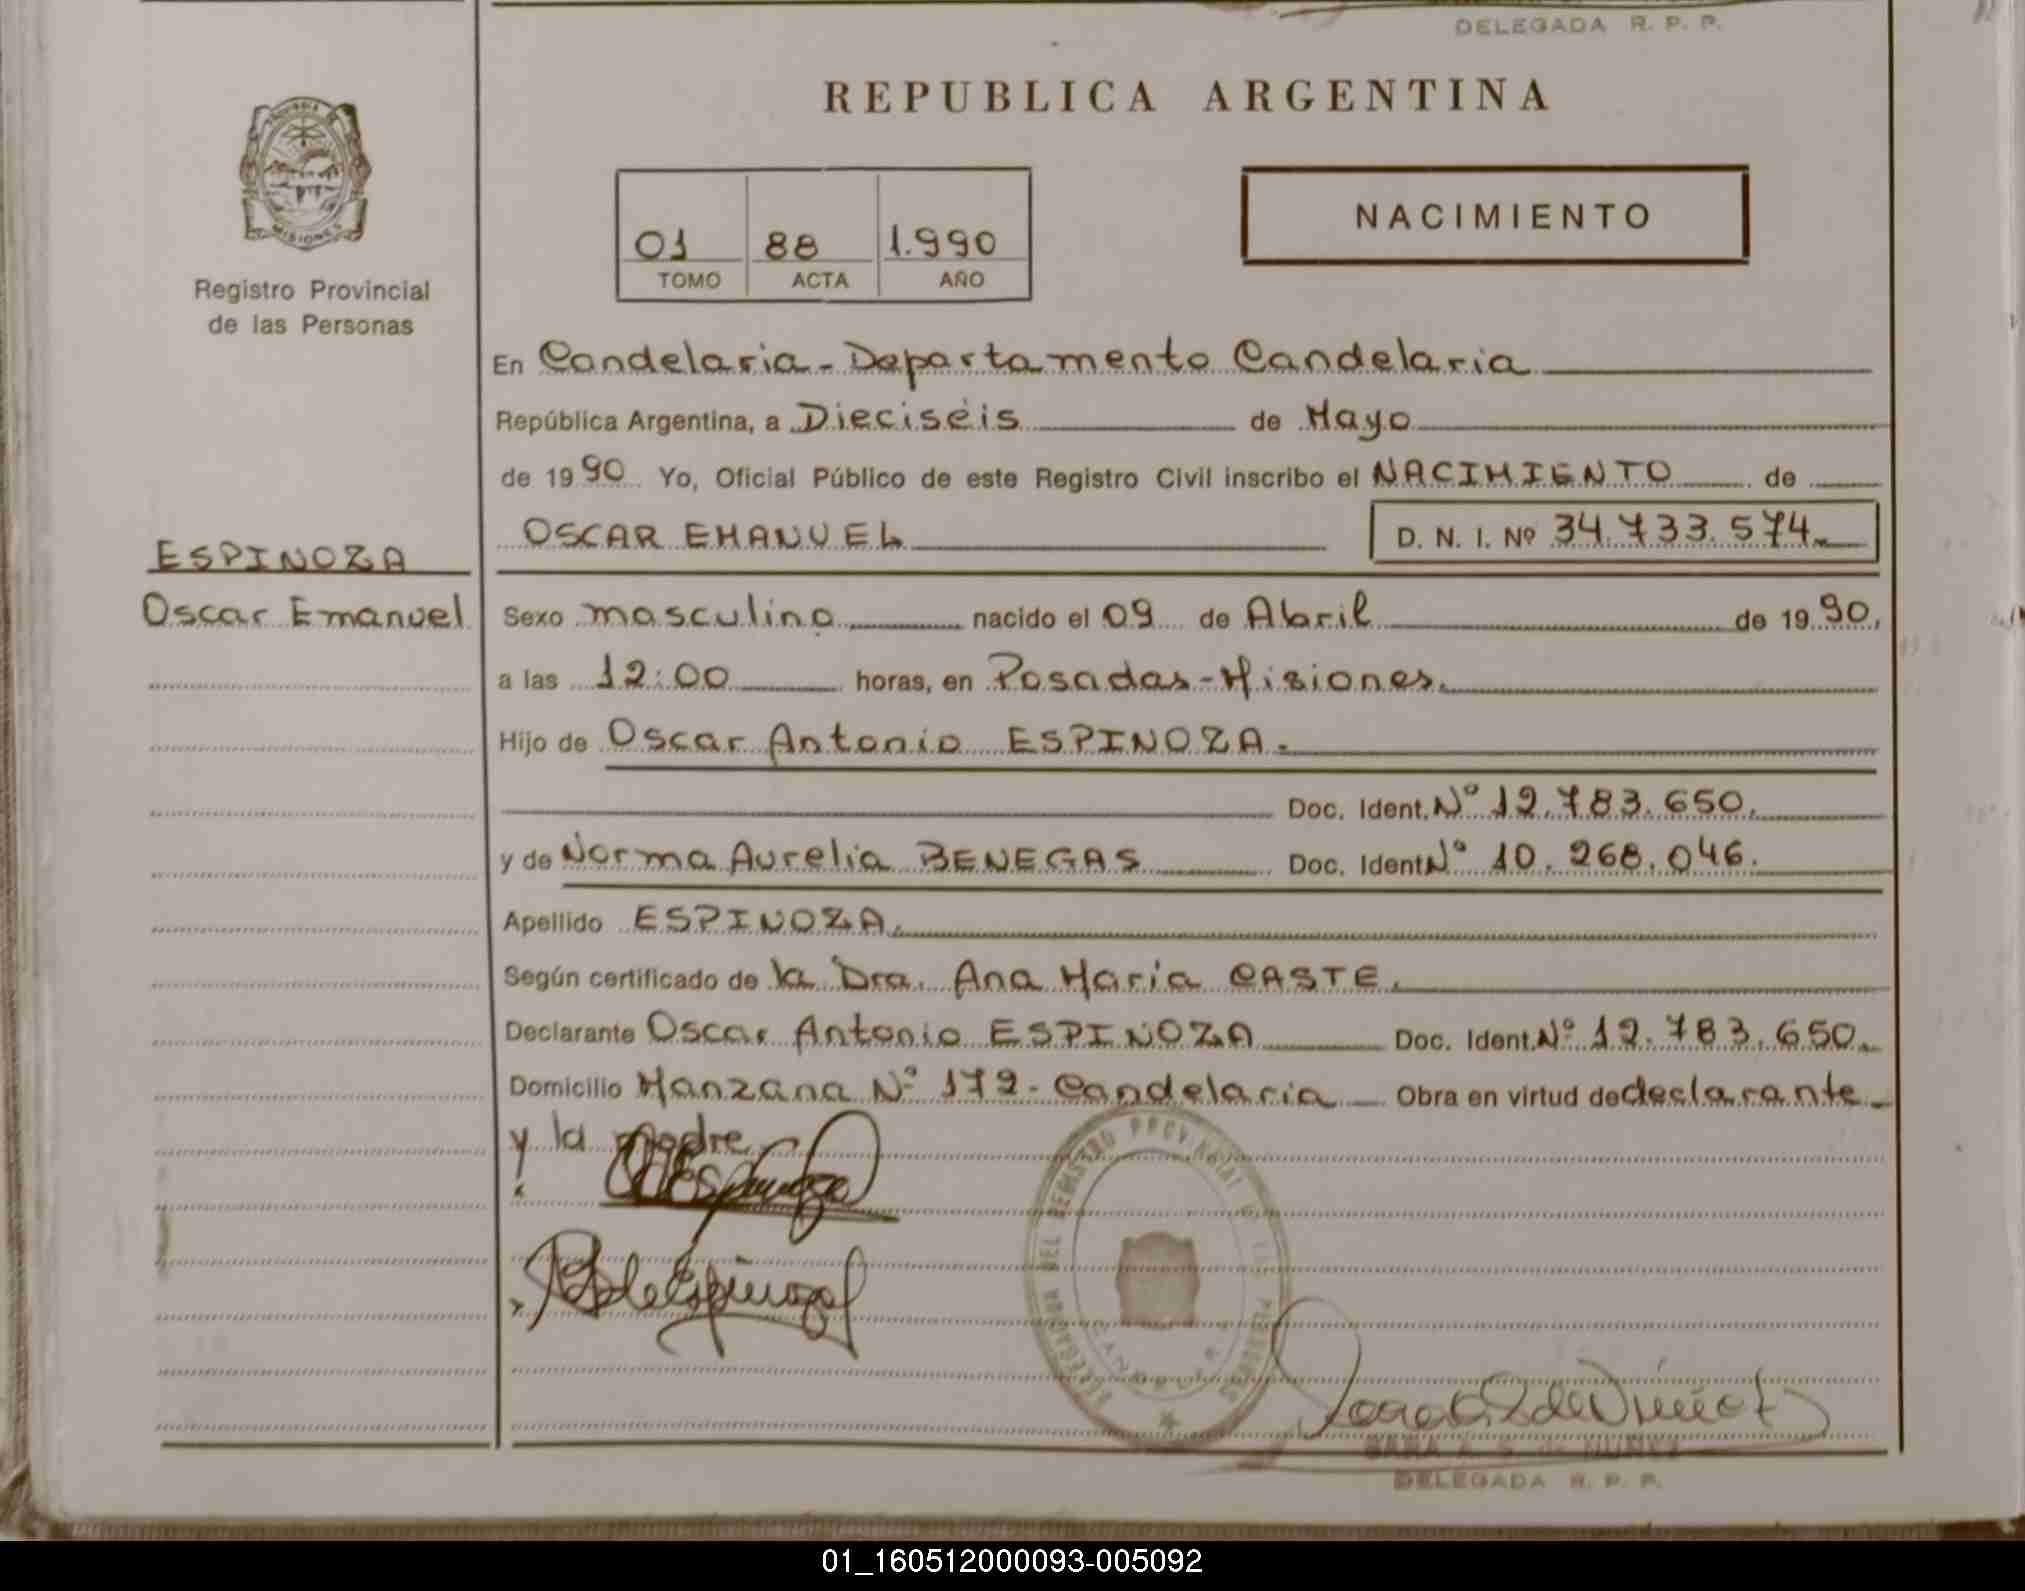 DELEGADA R. P. P.
REPUBLICA ARGENTINA
MISIONES
Registro Provincial
de las Personas
01 88 1.990
TOMO ACTA AÑO
NACIMIENTO
En Candelaria - Departamento Candelaria
República Argentina, a Dieciséis de Mayo
de 1990 Yo, Oficial Público de este Registro Civil inscribo el NACIMIENTO de
OSCAR EMANUEL D. N. I. Nº 34.733.574
ESPINOZA
Oscar Emanuel
Sexo masculino nacido el 09 de Abril de 1990,
a las 12:00 horas, en Posadas - Misiones.
Hijo de Oscar Antonio ESPINOZA.
Doc. Ident. Nº 12.783.650.
y de Norma Aurelia BENEGAS Doc. Ident Nº 10.268.046.
Apellido ESPINOZA.
Según certificado de la Dra. Ana Maria CASTE.
Declarante Oscar Antonio ESPINOZA Doc. Ident. Nº 12.783.650.
Domicilio Manzana Nº 179 - Candelaria Obra en virtud de declarante
y la madre
DELEGACION DEL REGISTRO PROVINCIAL DE LAS PERSONAS
CANDELARIA
SARA A. S. de NUÑEZ
DELEGADA R. P. P.
01_160512000093-005092